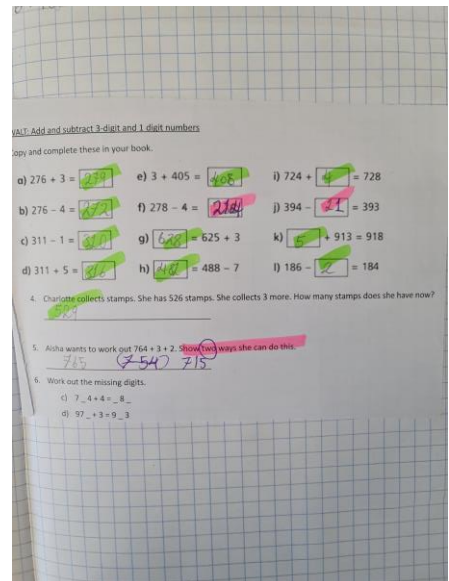 WALT: Add and subtract 3-digit and 1 digit numbers
Copy and complete these in your book.
a) 276 + 3 = 279
e) 3 + 405 = 408
i) 724 + 4 = 728
b) 276 - 4 = 272
f) 278 - 4 =
j) 394 - = 393
c) 311 - 1 = 310
g) 628 = 625 + 3
k) 5 + 913 = 918
d) 311 + 5 = 316
h) 481 = 488 - 7
l) 186 - 2 = 184
4. Charlotte collects stamps. She has 526 stamps. She collects 3 more. How many stamps does she have now?
529
5. Aisha wants to work out 764 + 3 + 2. Show two ways she can do this.
765 (754) 715
6. Work out the missing digits.
c) 7 _ 4 + 4 = _ 8 _
d) 97 _ + 3 = 9 _ 3